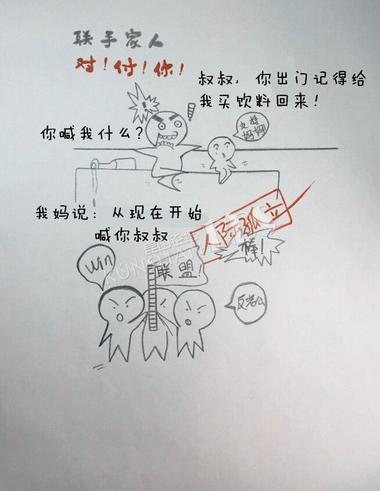 联手家人
对！付！你！
叔叔，你出门记得给
我买饮料回来！
你喊我什么？
支持
妈妈
我妈说：从现在开始
喊你叔叔
人际孤立
win
联盟！
棒！